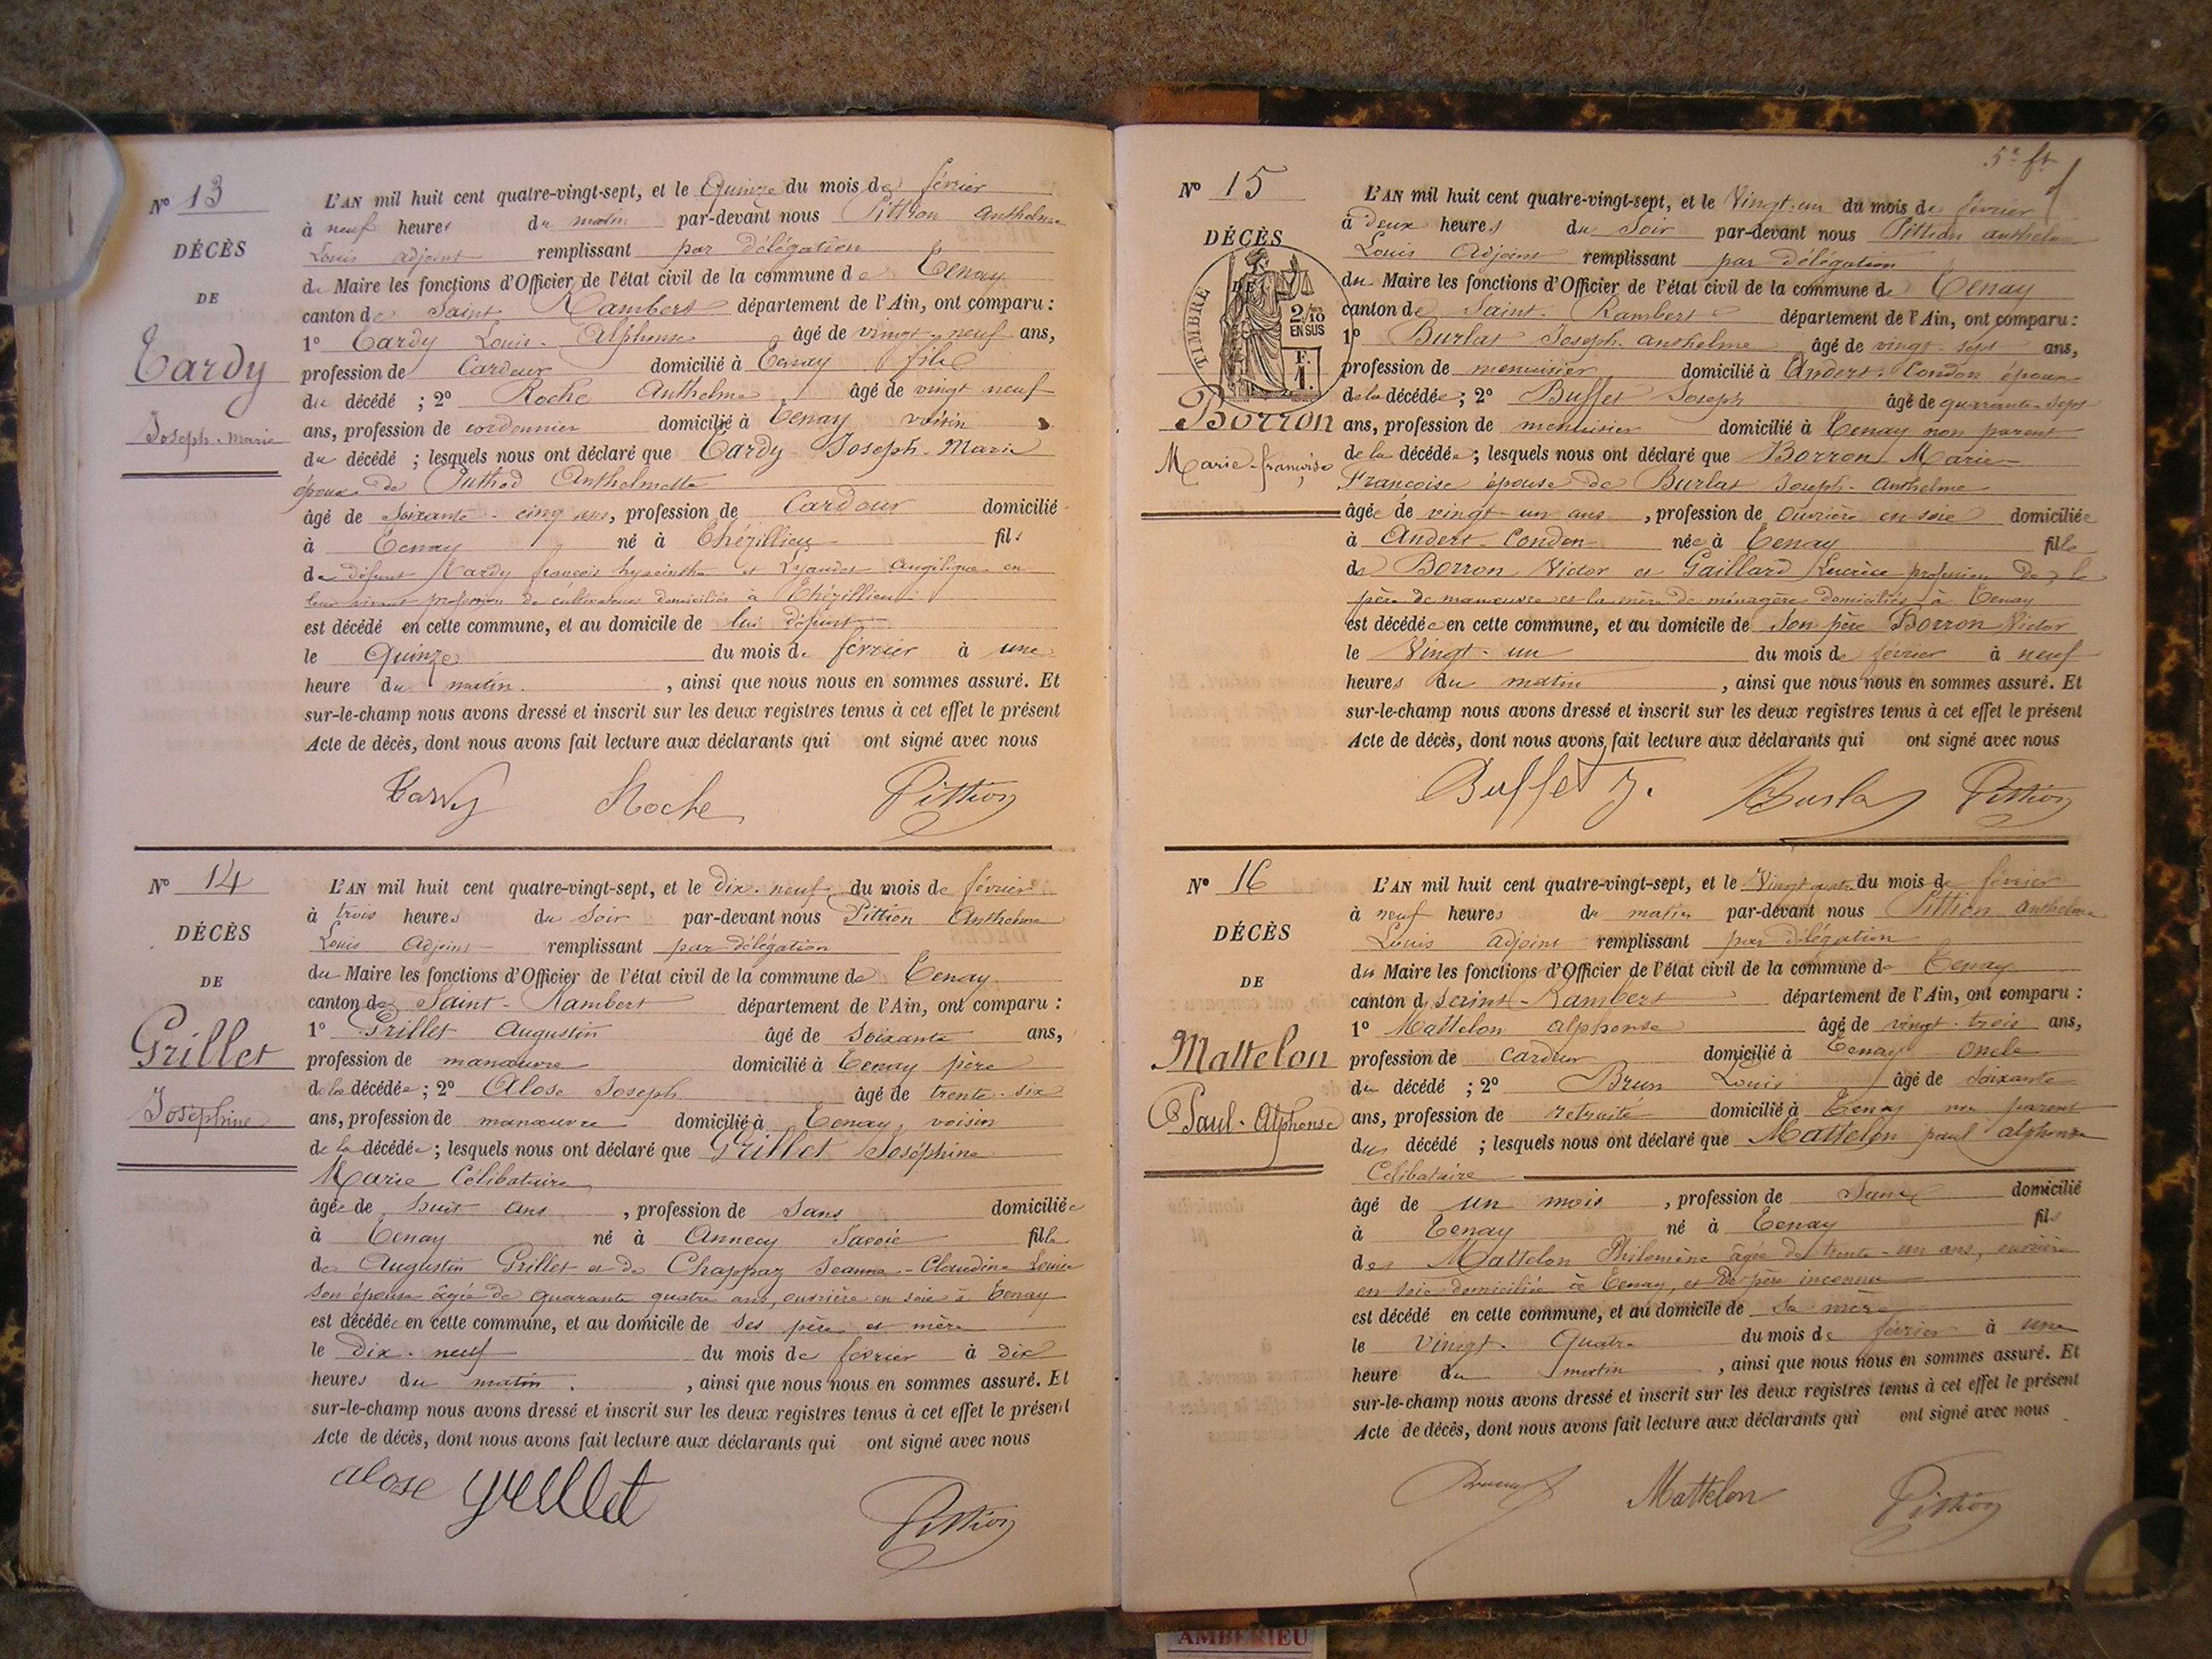 Nº 13
DÉCÈS
DE
Tardy
Joseph-Marie
L'AN mil huit cent quatre-vingt-sept, et le Quinze du mois de février
à neuf heures du matin par-devant nous Pittion Anthelme
Louis adjoint remplissant par délégation
du Maire les fonctions d'Officier de l'état civil de la commune de Tenay
canton de Saint Rambert département de l'Ain, ont comparu :
1º Tardy Louis-Alphonse âgé de vingt-neuf ans,
profession de Cardeur domicilié à Tenay fils
du décédé ; 2º Roche Anthelme âgé de vingt neuf
ans, profession de cordonnier domicilié à Tenay voisin
du décédé ; lesquels nous ont déclaré que Tardy Joseph-Marie
époux de Anthelmette
âgé de soixante-cinq ans, profession de Cardeur domicilié
à Tenay né à Thézillieu fils
de défunt Tardy françois hyacinthe et Angélique en
leur vivant profession de cultivateurs domiciliés à Thézillieu
est décédé en cette commune, et au domicile de lui défunt
le Quinze du mois de février à une
heure du matin, ainsi que nous nous en sommes assuré. Et
sur-le-champ nous avons dressé et inscrit sur les deux registres tenus à cet effet le présent
Acte de décès, dont nous avons fait lecture aux déclarants qui ont signé avec nous
Tardy Roche Pittion
Nº 14
DÉCÈS
DE
Grillet
Joséphine
L'AN mil huit cent quatre-vingt-sept, et le dix-neuf du mois de février
à trois heures du soir par-devant nous Pittion Anthelme
Louis Adjoint remplissant par délégation
du Maire les fonctions d'Officier de l'état civil de la commune de Tenay
canton de Saint-Rambert département de l'Ain, ont comparu :
1º Grillet Augustin âgé de soixante ans,
profession de manœuvre domicilié à Tenay père
de la décédée ; 2º Alose Joseph âgé de trente-six
ans, profession de manœuvre domicilié à Tenay, voisin
de la décédée ; lesquels nous ont déclaré que Grillet Joséphine
Marie Célibataire
âgée de huit ans, profession de sans domiciliée
à Tenay né à Annecy Savoie fille
de Augustin Grillet et de Chappaz Jeanne-Claudine Louise
son épouse âgée de quarante quatre ans, ouvrière en soie à Tenay
est décédée en cette commune, et au domicile de ses père et mère
le Dix-neuf du mois de février à dix
heures du matin, ainsi que nous nous en sommes assuré. Et
sur-le-champ nous avons dressé et inscrit sur les deux registres tenus à cet effet le présent
Acte de décès, dont nous avons fait lecture aux déclarants qui ont signé avec nous
alose grillet Pittion
5e ft
Nº 15
DÉCÈS
DE
TIMBRE
2/10
EN SUS
F.
1.
Borron
Marie-françoise
L'AN mil huit cent quatre-vingt-sept, et le Vingt-un du mois de février
à deux heures du Soir par-devant nous Pittion anthelme
Louis Adjoint remplissant par délégation
du Maire les fonctions d'Officier de l'état civil de la commune de Tenay
canton de Saint-Rambert département de l'Ain, ont comparu :
1º Burlat Joseph-anthelme âgé de vingt-sept ans,
profession de menuisier domicilié à Andert-Condon époux
de la décédée ; 2º Buffet Joseph âgé de quarante-sept
ans, profession de menuisier domicilié à Tenay non parent
de la décédée ; lesquels nous ont déclaré que Borron Marie-
Françoise épouse de Burlat Joseph-Anthelme
âgée de vingt-un ans, profession de Ouvrière en soie domiciliée
à Andert-Condon née à Tenay fille
de Borron Victor et Gaillard Lucrèce profession de le
père de manœuvre et la mère de ménagère domiciliés à Tenay
est décédée en cette commune, et au domicile de son père Borron Victor
le Vingt-un du mois de février à neuf
heures du matin, ainsi que nous nous en sommes assuré. Et
sur-le-champ nous avons dressé et inscrit sur les deux registres tenus à cet effet le présent
Acte de décès, dont nous avons fait lecture aux déclarants qui ont signé avec nous
Buffet J. Burlat Pittion
Nº 16
DÉCÈS
DE
Mattelon
Paul-Alphonse
L'AN mil huit cent quatre-vingt-sept, et le Vingt quatre du mois de février
à neuf heures du matin par-devant nous Pittion anthelme
Louis adjoint remplissant par délégation
du Maire les fonctions d'Officier de l'état civil de la commune de Tenay
canton de Saint-Rambert département de l'Ain, ont comparu :
1º Mattelon alphonse âgé de vingt-trois ans,
profession de cardeur domicilié à Tenay oncle
du décédé ; 2º Brun Louis âgé de soixante
ans, profession de retraité domicilié à Tenay non parent
du décédé ; lesquels nous ont déclaré que Mattelon paul alphonse
Célibataire
âgé de un mois, profession de Sans domicilié
à Tenay né à Tenay fils
de Mattelon Philomène âgée de trente-un ans, ouvrière
en soie domiciliée à Tenay, et de père inconnu
est décédé en cette commune, et au domicile de sa mère
le vingt-quatre du mois de février à une
heure du matin, ainsi que nous nous en sommes assuré. Et
sur-le-champ nous avons dressé et inscrit sur les deux registres tenus à cet effet le présent
Acte de décès, dont nous avons fait lecture aux déclarants qui ont signé avec nous
Mattelon Pittion
AMBERIEU